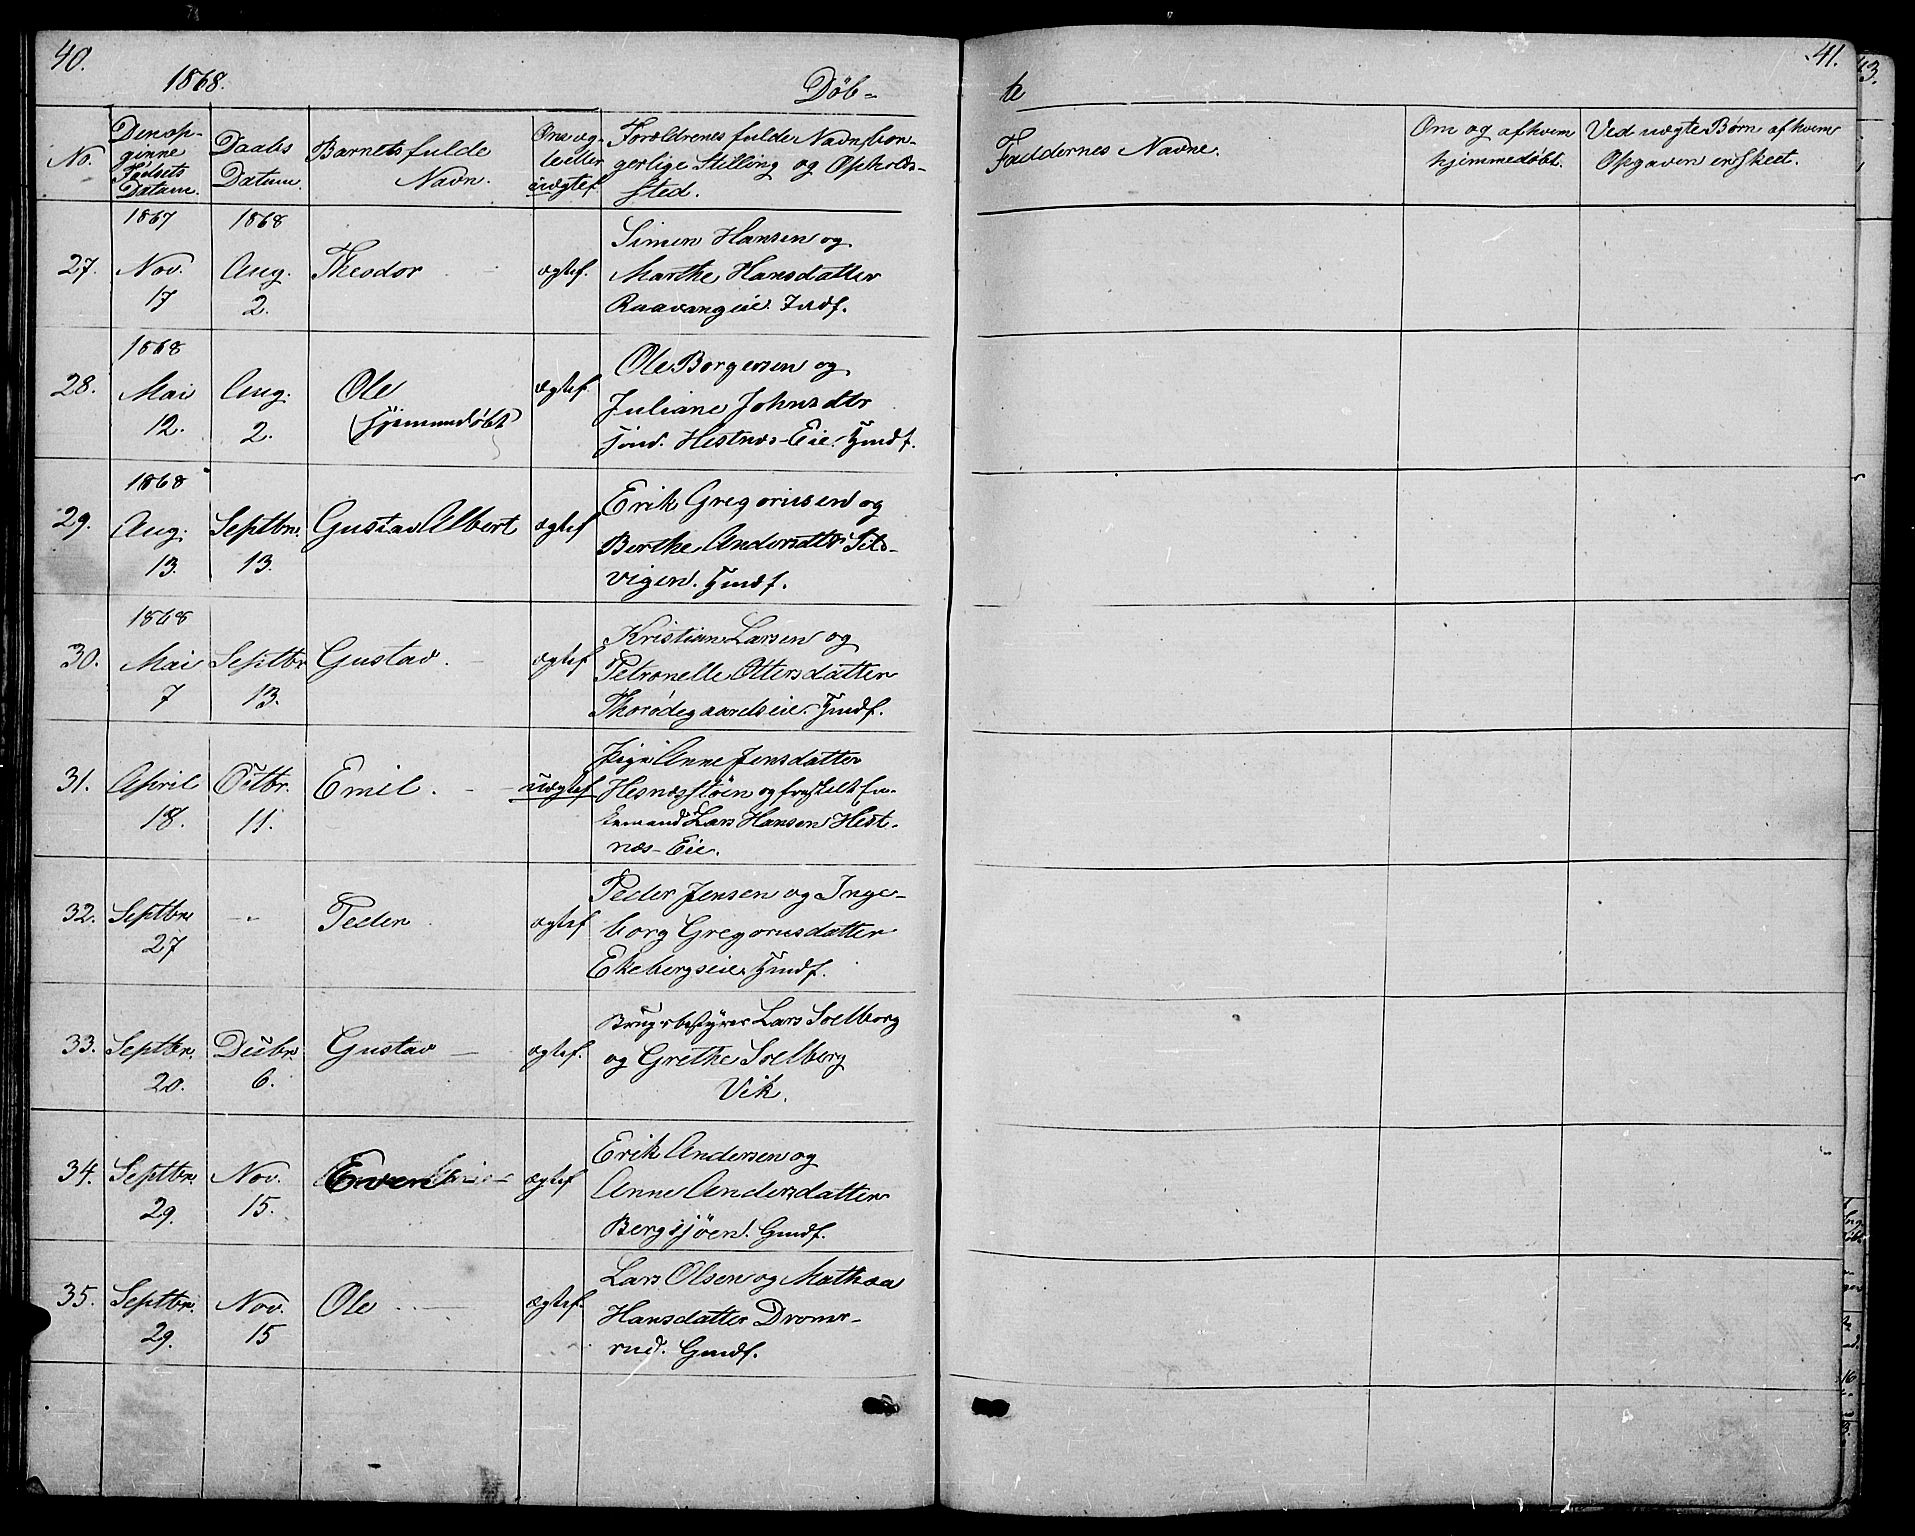 40.
41.
1868.
Døb-
te
No.
Den op-
ginne
Fødsels
Datum.
Daabs
Datum.
Barnets fulde
Navn.
Om æg-
te eller
uægtef
Forældrenes fulde Navn, bor-
gerlige Stilling og Opholds-
Sted.
Faddernes Navne.
Om og af hvem
hjemmedøbt.
Ved uægte Børn af hvem
Opgaven er skeet.
27.
1867
Nov.
17
1868
Aug.
2.
Theodor
ægtef.
Simen Hansen og
Marthe Hansdatter
Raavangeie. Indf.
28.
1868
Mai
12.
Aug.
2.
Ole
(hjemmedøbt)
ægtef.
Ole Borgersen og
Juliane Johnsdtr
Hestnæs-Eie. Gmdf.
29.
1868
Aug.
13.
Septbr.
13.
Gustav Albert
ægtef
Erik Gregoriusen og
Berthe Andersdtr Sil-
vigen. Gmdf.
30.
1868
Mai
7
Septbr
13.
Gustav.
ægtef
Kristian Larsen og
Petronelle Ottersdatter
Thorødegaardseie. Gmdf.
31.
April
18.
Octbr.
11.
Emil.
uægtef
Pige Anne Jensdatter
Hesnæsstøen og frastilt En-
kemand Lars Hansen Hest-
næs-Eie.
32.
Septbr
27
-"-
Peder
ægtef
Peder Jensen og Inge-
borg Gregoriusdatter
Ekebergseie. Gmdf.
33.
Septbr.
20.
Decbr.
6.
Gustav
ægtef.
Brugsbestyrer Lars Solberg
og Grethe Solberg
Vik.
34.
Septbr
29.
Nov.
15.
Even
ægtef
Erik Andersen og
Anne Andersdatter
Bergsjøen. Gmdf.
35.
Septbr.
29.
Nov.
15
Ole
ægtef.
Lars Olsen og Mathea
Hansdatter Droms-
rud. Gmdf.